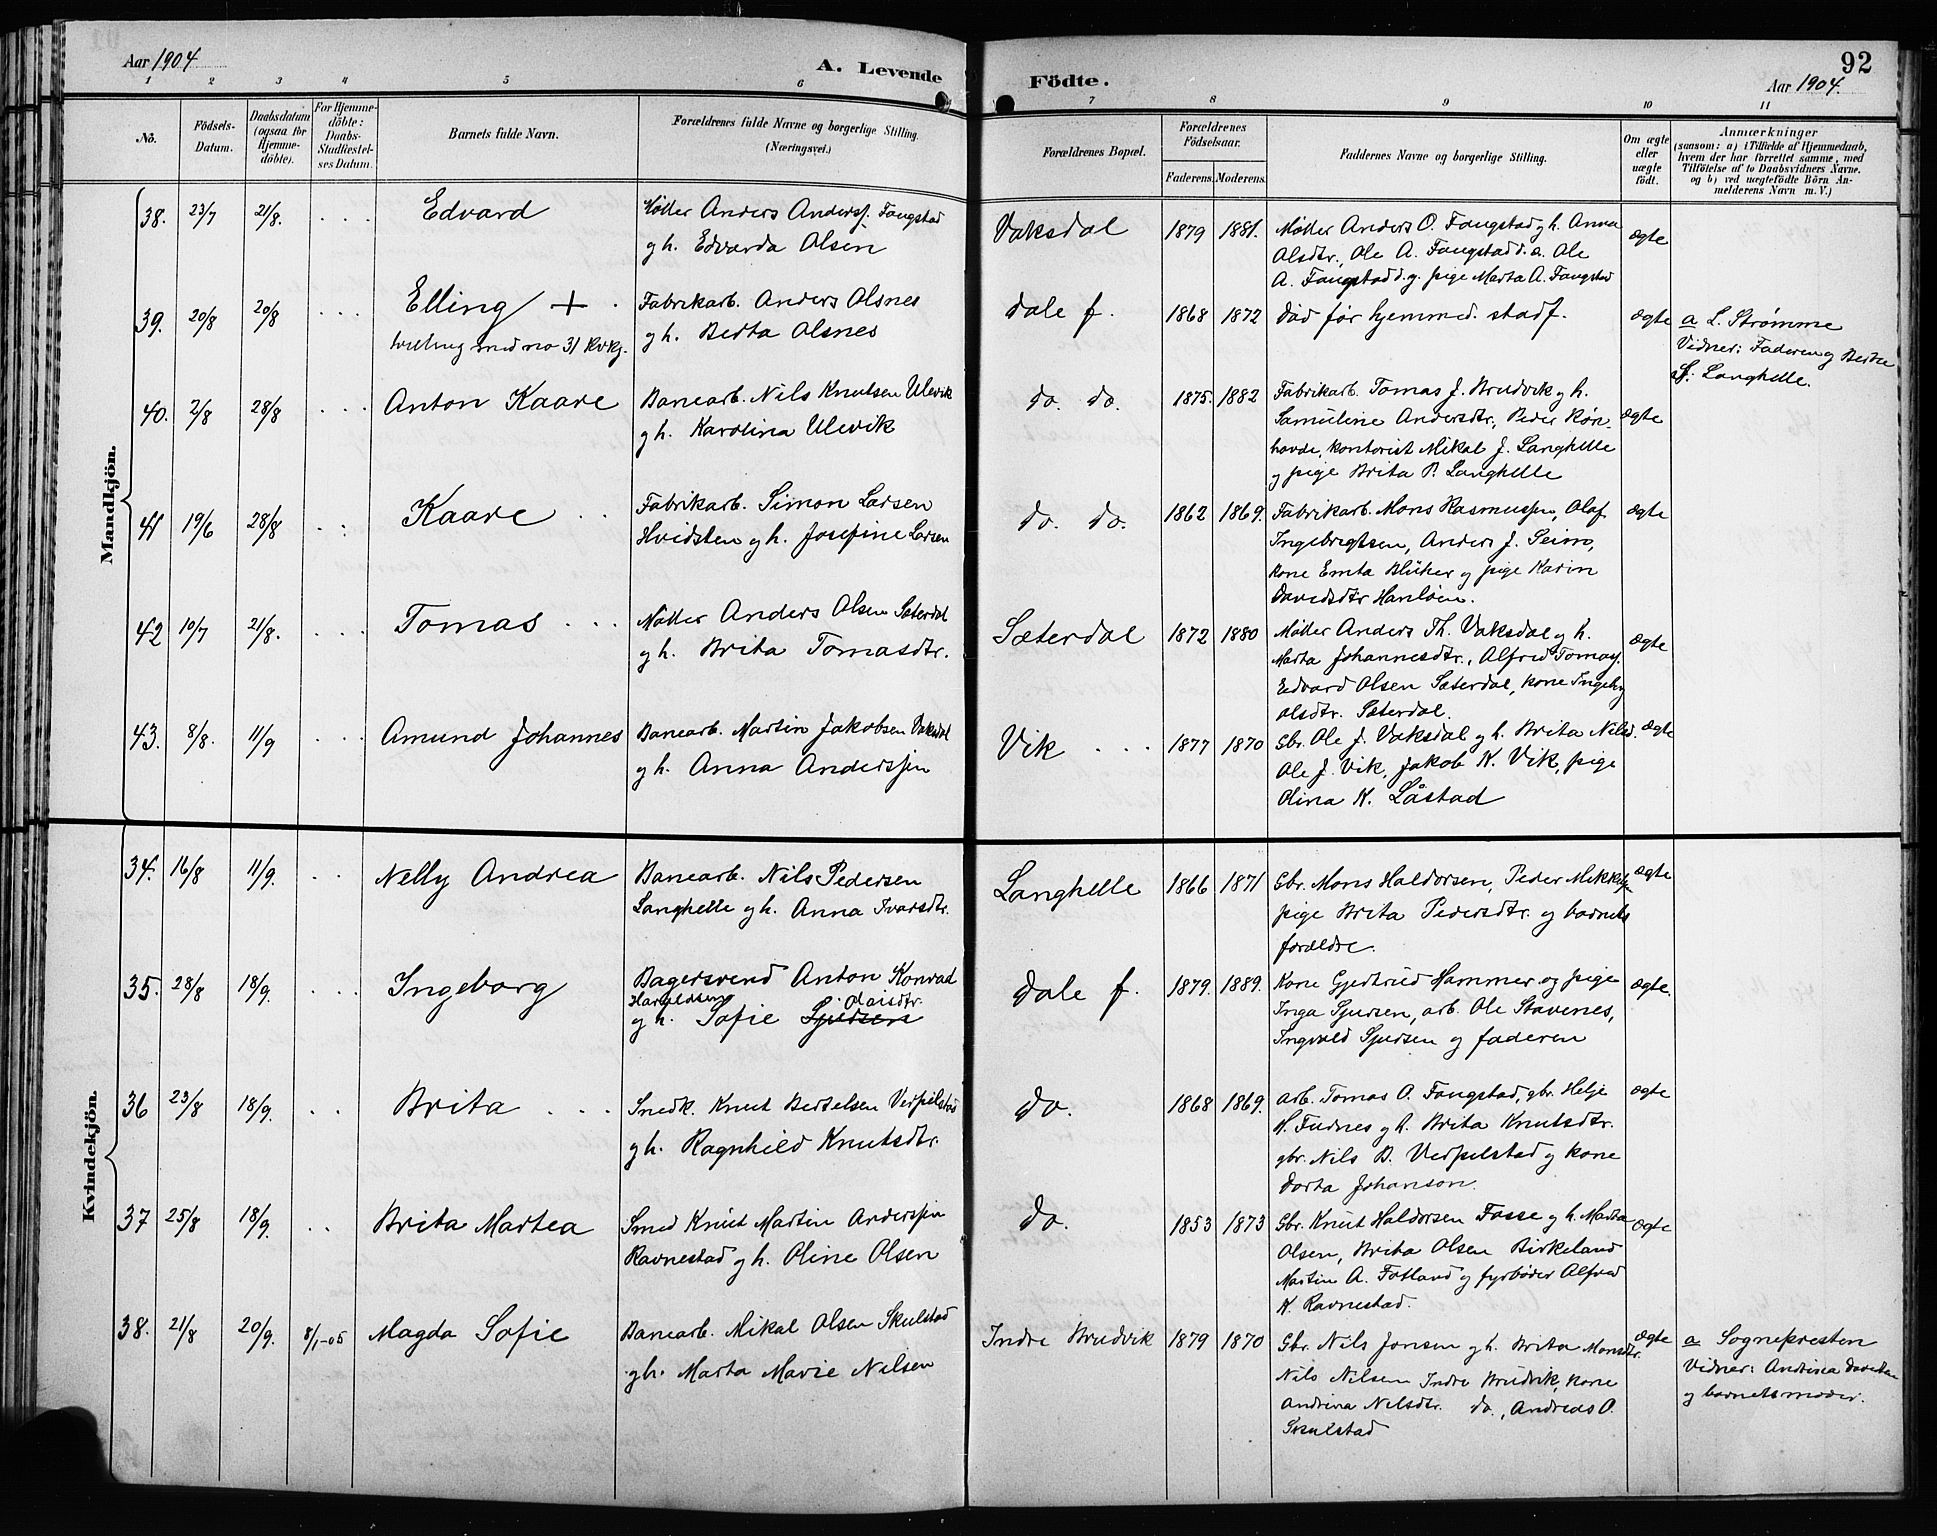 Aar 1904
A. Levende Födte.
92
Aar 1904.
1 2 3 4 5 6 7 8 9 10 11
No.
Födsels-Datum.
Daabsdatum (ogsaa for Hjemme-döbte).
For Hjemme-döbte: Daabs-Stadfæstel-ses Datum.
Barnets fulde Navn.
Forældrenes fulde Navne og borgerlige Stilling. (Næringsvei.)
Forældrenes Bopæl.
Forældrenes Födselsaar.
Faderens. Moderens.
Faddernes Navne og borgerlige Stilling.
Om ægte eller uægte födt.
Anmærkninger
(saasom: a) i Tilfælde af Hjemmedaab, hvem der har forrettet samme, med Tilföielse af to Daabsvidners Navne. og b) ved uægtefödte Börn An-melderens Navn m. V.)
Mandkjön.
38. 23/7 21/8. . . . Edvard
Møller Anders Anderss. Fangstad
g h. Edvarda Olsen
Vaksdal 1879 1881.
Møller Anders O. Fangstad g h. Anna
Olsdtr., Ole A. Fangstad d. a. Ole
A. Fangstad d. y. pige Marta A. Fangstad
ægte
39. 20/8 20/8 . . . Elling +
tvilling med no 31 Kvkj.
Fabrikarb. Anders Olsnes
g h. Berta Olsnes
Dale f. 1868 1872 Död før hjemmed. stadf. ægte
a L. Strømme
Vidner: Faderen og Berta
Langhelle.
40. 2/8 28/8 . . . Anton Kaare
Banearb. Nils Knutsen Ulevik
g h. Karolina Ulevik
do. do. 1875. 1882
Fabrikarb. Tomas J. Brudvik g h.
Samuline Andersdtr., Peder Røn-
hovde, kontorist Mikal J. Langhelle
g pige Brita P. Langhelle
ægte
41 19/6 28/8 . : Kaare . .
Fabrikarb. Simon Larsen
Hvidsten g h. Josefine Larsen
do. do. 1862 1869.
Fabrikarb. Mons Rasmussen, Olaf
Ingebrigtsen, Anders J. Seim,
kone Emta Blüker g pige Karin
Davidsdtr
ægte
42 10/7 21/8. . . . Tomas . . .
Møller Anders Olsen Sæterdal
g h. Brita Tomasdtr.
Sæterdal 1872 1880
Møller Anders Th. Vaksdal g h.
Marta Johannesdtr., Alfred Tomass.
Edvard Olsen Sæterdal, kone Ingeb.
Olsdtr. Sæterdal.
ægte
43. 8/8. 11/9 . . . Amund Johannes
Banearb. Martin Jakobsen Vaksdal
g h. Anna Anderssen
Vik . . . 1877 1870
Gbr. Ole J. Vaksdal g h. Brita Nilsd.
Ole J. Vik, Jakob K. Vik, pige
Olina K. Låstad
ægte
Kvindekjön.
34. 16/8 11/9. . . Nelly Andrea
Banearb. Nils Pedersen
Langhelle g h. Anna Ivarsdtr.
Langhelle 1866 1871
Gbr. Mons Haldorsen, Peder Mikkels.
pige Brita Pedersdtr. og barnets
forældre.
ægte
35. 28/8 18/9. . . . Ingeborg
Bagersvend Anton Konrad
Haraldsen Olaisdtr.
g h. Sofie Sjursen
Dale f. 1879. 1889.
Kone Gjertrud Hammer og pige
Inga Sjursen, arb. Ole Stavenes,
Ingvald Sjursen og faderen
ægte.
36 23/8 18/9. . . Brita . . .
Smedk. Knut Bertelsen Verpelstad
g h. Ragnhild Knutsdtr.
do. 1868 1869.
arb. Tomas O. Fangstad, gbr. Helje
H. Fudnes g h. Brita Knutsdtr.
gbr. Nils B. Verpelstad g kone
Dorta Johanson.
ægte
37 25/8 18/9. . . Brita Martea
Smed Knut Martin Anderssen
Ravnestad g h. Oline Olsen
do. 1853 1873
Gbr. Knut Haldorsen Fosse g h. Marta
Olsen, Brita Olsen Birkeland
Martin A. Fotland g fyrbøder Alfred
K. Ravnestad.
ægte
38. 21/8 20/9. 8/1-05 Magda Sofie
Banearb. Mikal Olsen Skulstad
g h. Marta Marie Nilsen
Indre Brudvik 1879 1870
Gbr. Nils Jonsen g h. Brita Monsdtr.
Nils Nilsen Indre Brudvik, kone
Andrina Nilsdtr. do., Andreas O.
Skulstad
ægte
a Sognepresten
Vidner: Andrina
g barnets moder.